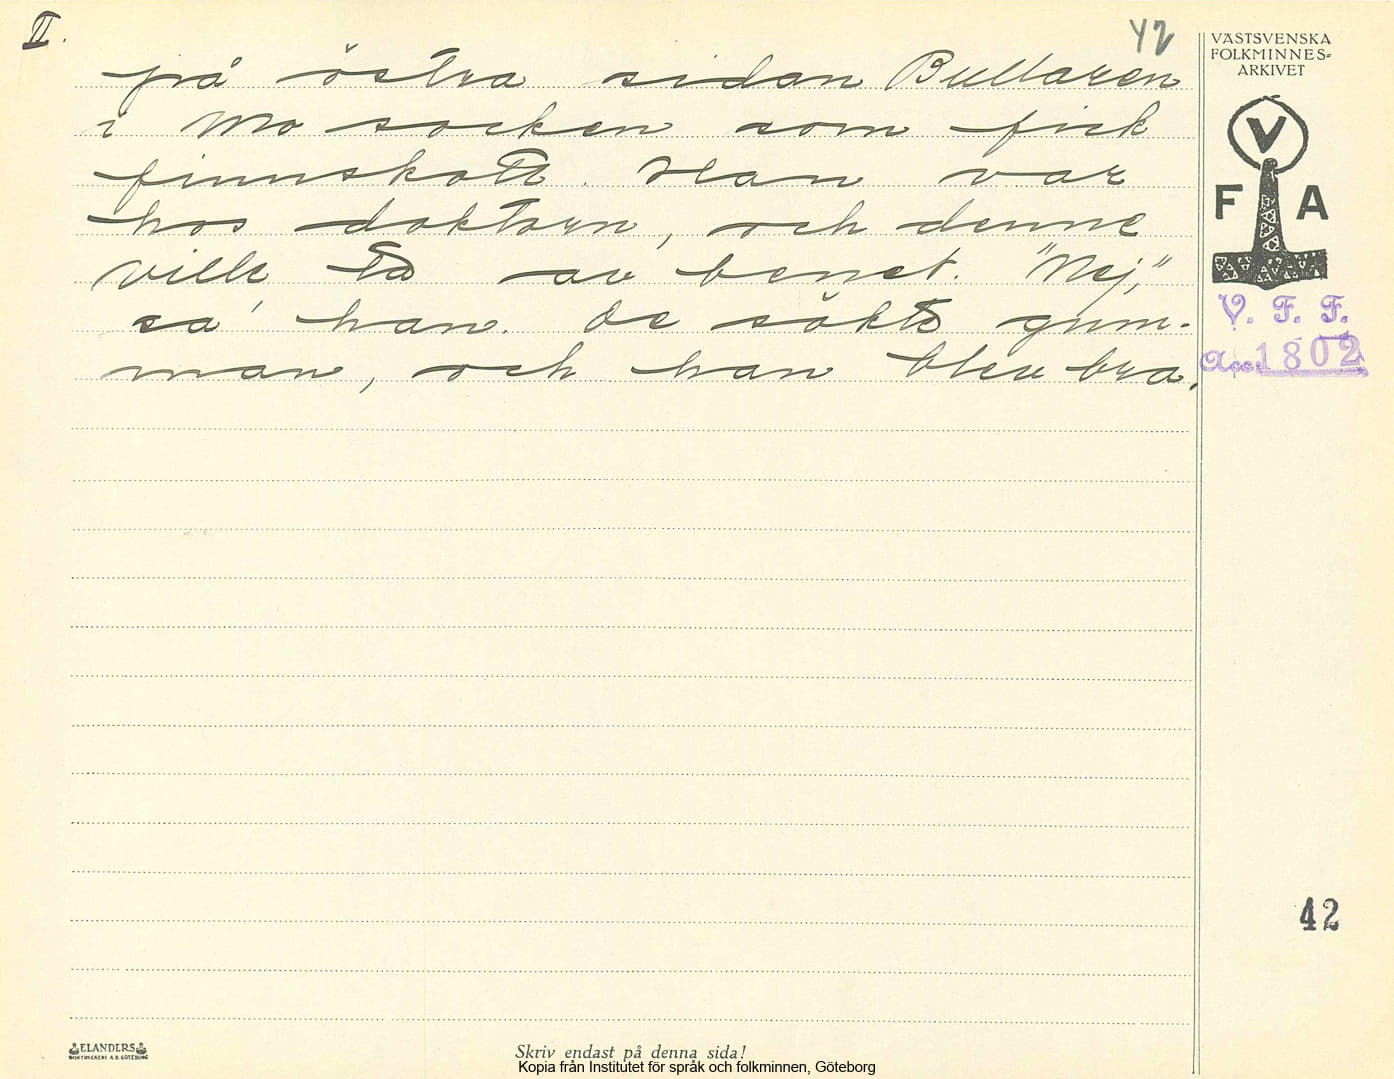 II.
42
på östra sidan Bullaren
i Mo socken som fick
finnskott. Han var
hos doktorn, och denne
ville ta av benet. "Nej,"
sa' han. De sökte gum-
man, och han blev bra.
VÄSTSVENSKA
FOLKMINNES-
ARKIVET
V
F A
V. F. F.
Acc. 1802
42
ELANDERS
BOKTRYCKERI A.B. GÖTEBORG
Skriv endast på denna sida!
Kopia från Institutet för språk och folkminnen, Göteborg